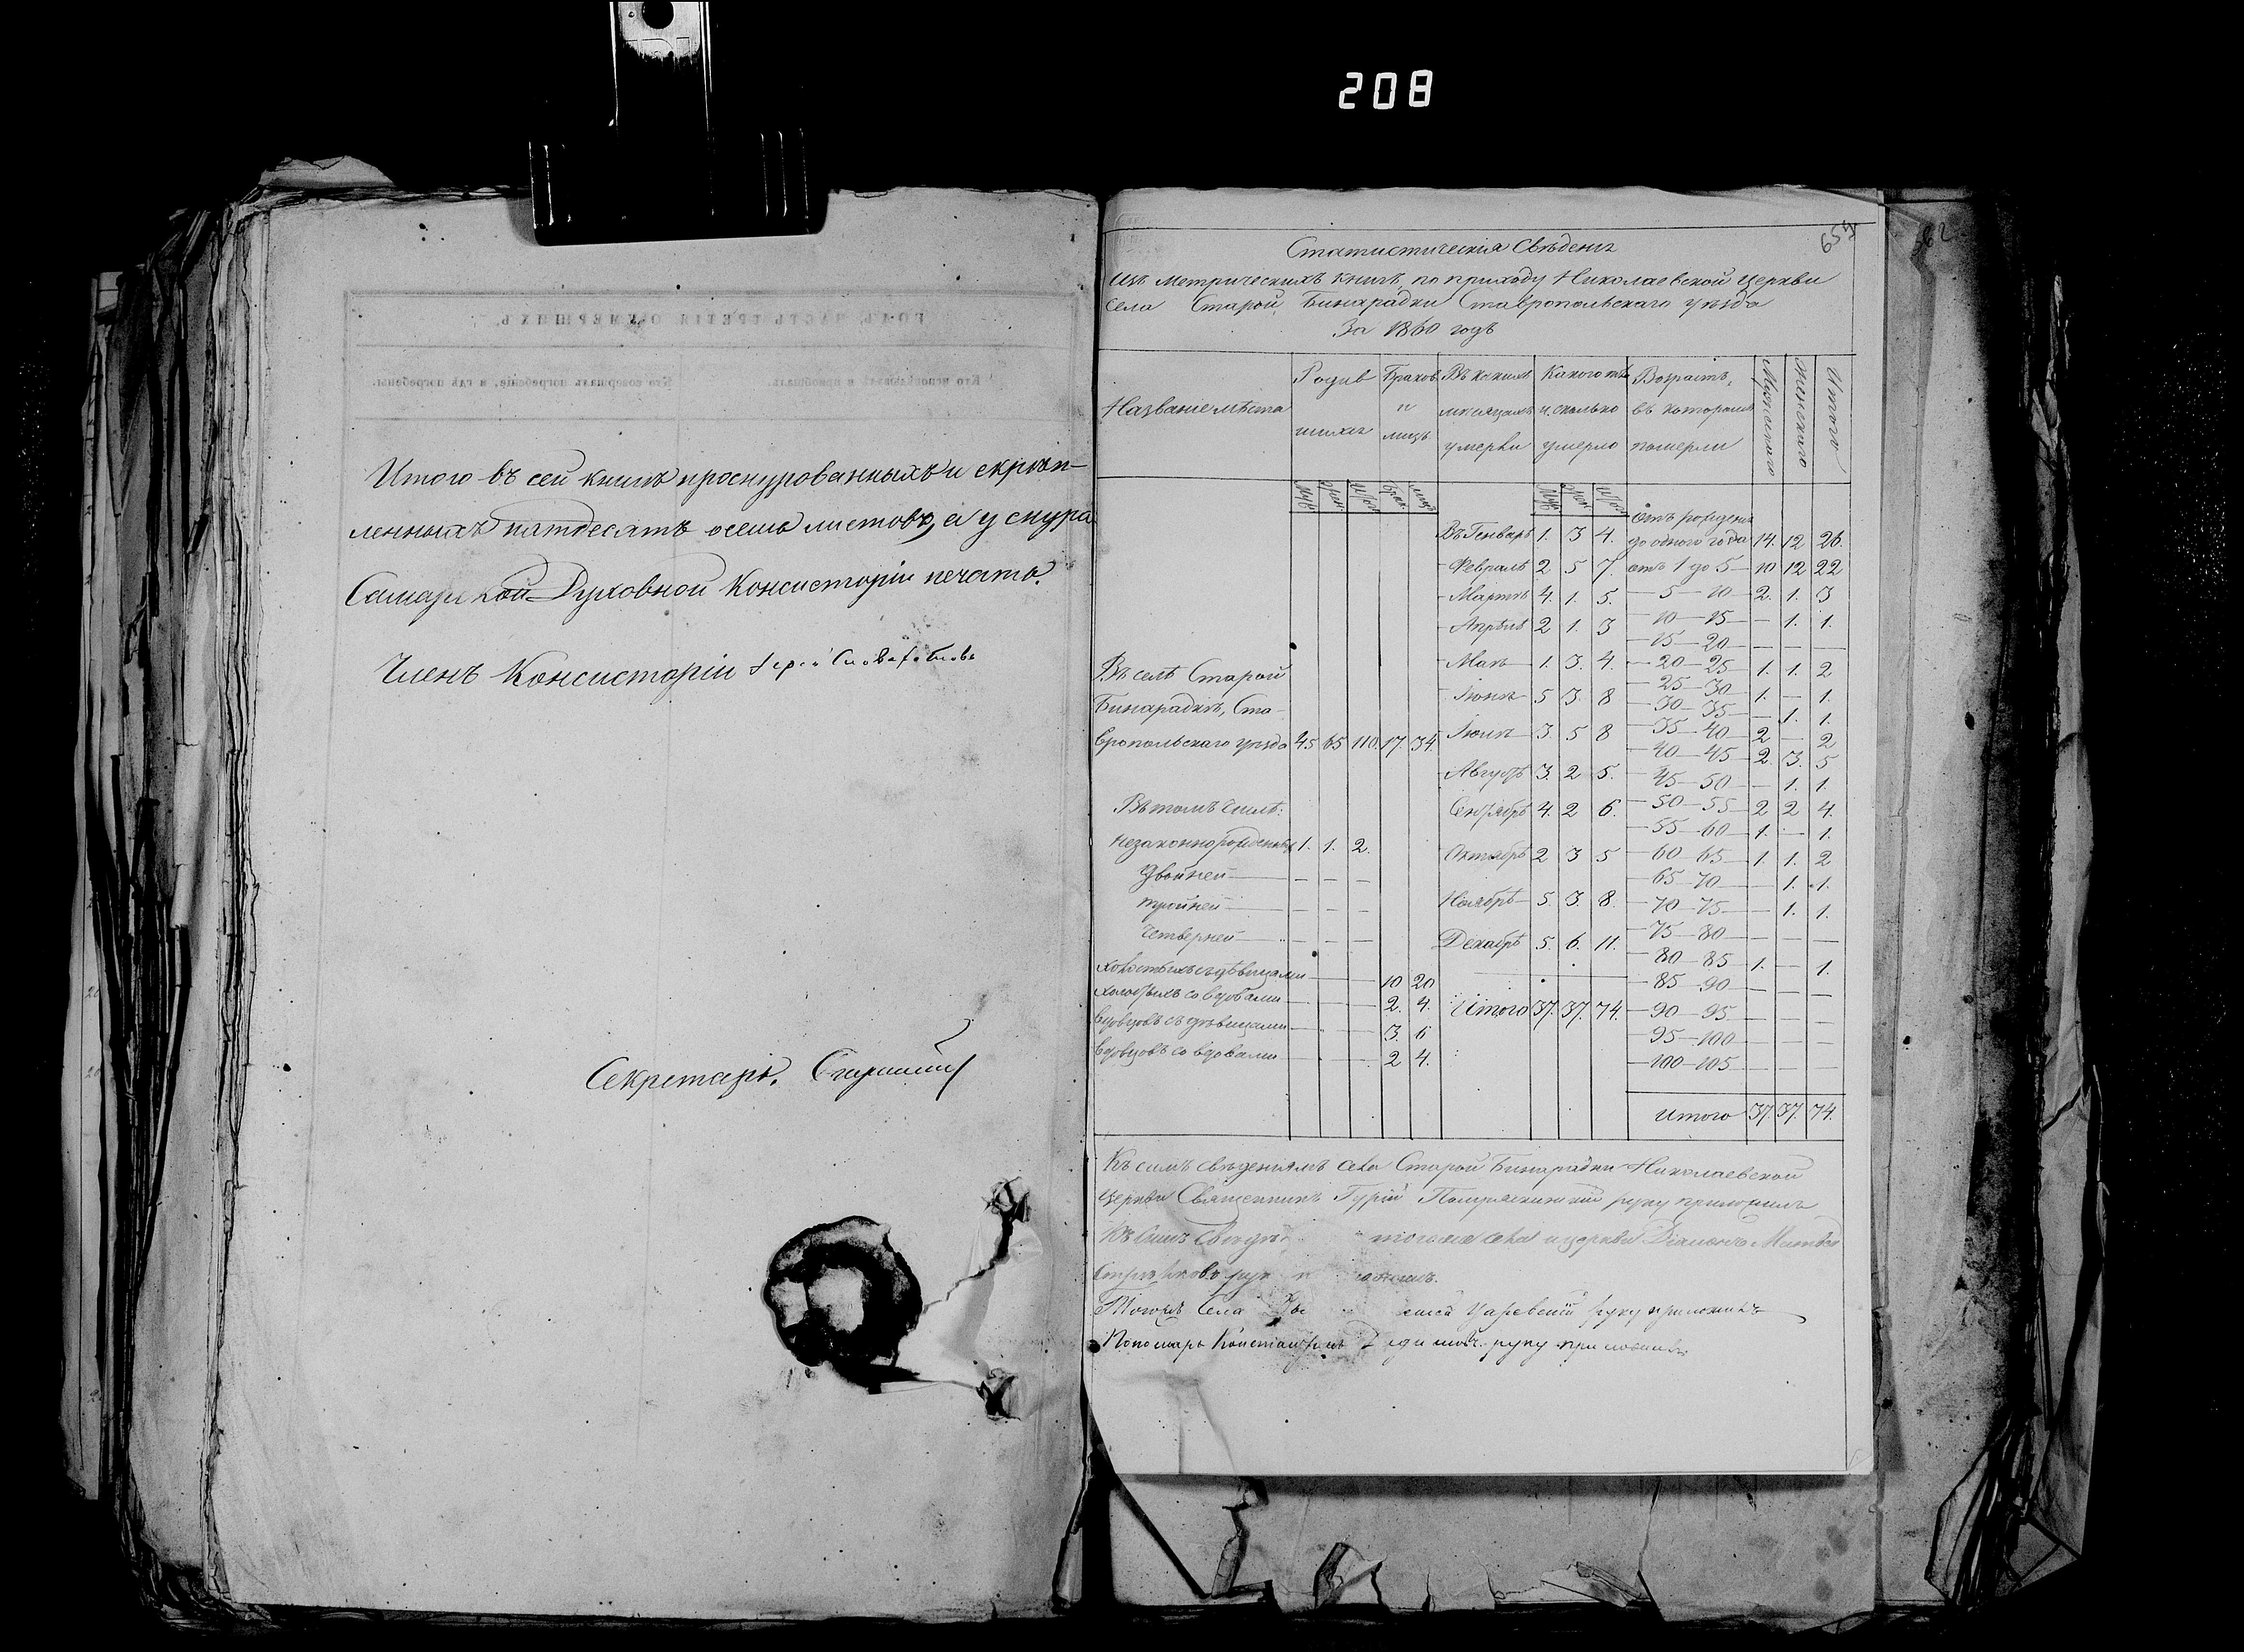 208
Итого въ сей книгѣ прошнурованныхъ и скрѣп-
ленныхъ пятдесятъ осемь листовъ, а у шнура
Самарской Духовной Консисторіи печать.
Членъ Консисторіи
Секретарь
655
562
Статистическія Свѣденія
Изъ метрическихъ книгъ, по приходу Николаевской церкви
села Старой Бинарадки Ставропольскаго уѣзда
За 1860 годъ
Названіе мѣста
Родив шихся
Браков и лицъ
Въ какихъ мѣсяцахъ умерли
Какого и сколько умерло
Возрастъ, въ которомъ померли
Мужескаго
Женскаго
Итого
Въ селѣ Старой
Бинарадкѣ, Ста-
вропольскаго уѣзда 45 65 110. 17. 34.
Въ томъ числѣ:
незаконнорожденныхъ 1. 1. 2.
двойней — — —
тройней — — —
четверней — — —
холостыхъ съ дѣвицами 10 20
холостыхъ со вдовами 2. 4.
вдовцовъ съ дѣвицами 3. 6
вдовцовъ со вдовами 2 4.
Въ Генварѣ 1. 3 4.
Февралѣ 2 5 7.
Мартѣ 4. 1. 5.
Апрѣлѣ 2 1. 3
Маѣ 1. 3. 4.
Іюнѣ 5 3. 8
Іюлѣ 3. 5 8
Августѣ 3. 2 5.
Сентябрѣ 4. 2 6.
Октябрѣ 2 3 5
Ноябрѣ 5. 3. 8.
Декабрѣ 5. 6. 11.
Итого 37. 37. 74.
Отъ рожденія
до одного года 14. 12 26.
отъ 1 до 5 10 12 22
5 — 10 2. 1. 3
10 — 15 — 1. 1.
15 — 20 — — —
20 — 25 1. 1. 2
25 — 30 1. — 1.
30 — 35 — 1. 1.
35 — 40 2 — 2
40 — 45 2. 3. 5
45 — 50 — 1. 1.
50 — 55 2 2 4.
55 — 60 1. — 1.
60 — 65 1. 1. 2
65 — 70 — 1. 1.
70 — 75 — 1. 1.
75 — 80 — — —
80 — 85 1. — 1.
85 — 90 — — —
90 — 95 — — —
95 — 100 — — —
100 — 105 — — —
Итого 37. 37. 74.
Къ симъ свѣденіямъ села Старой Бинарадки Николаевской
церкви Священникъ Гурій руку приложилъ
Къ симъ тогоже села и церкви Діаконъ
Тогожъ села Царевскій руку приложилъ
Пономарь Константинъ руку приложилъ